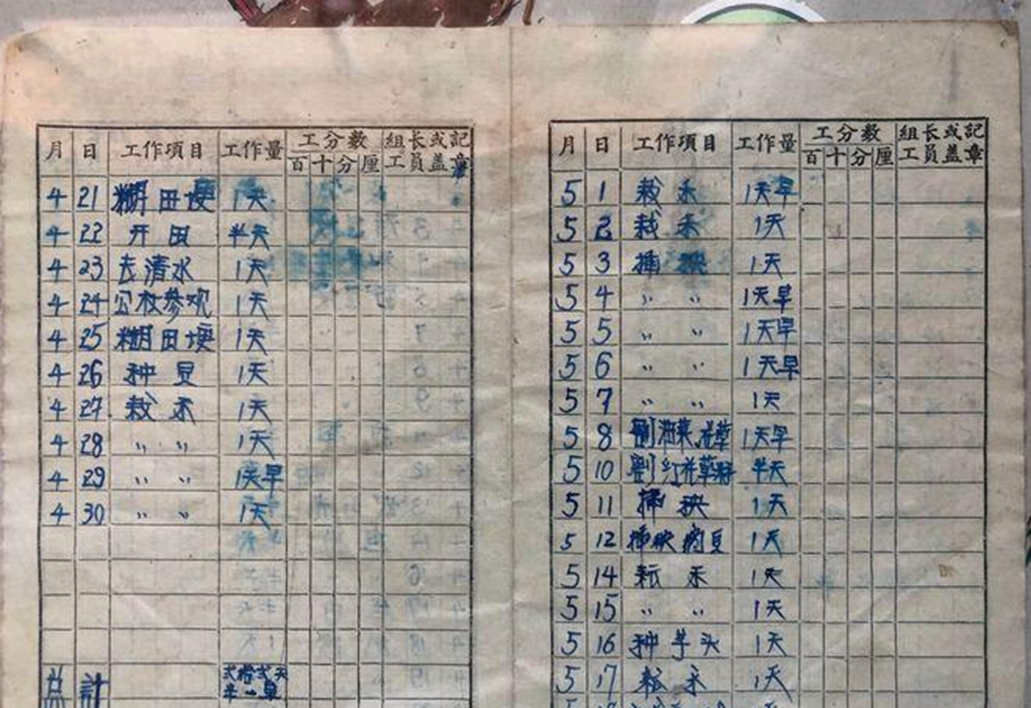 月 日 工作項目 工作量 工分数 組长或記
百十分厘 工员盖章
4 21 糊田埂 1天
4 22 开田 半天
4 23 去清水 1天
4 24 公枚参观 1天
4 25 糊田埂 1天
4 26 种豆 1天
4 27 栽禾 1天
4 28 〃 〃 1天
4 29 〃 〃 1天早
4 30 〃 〃 1天
总計 弍拾弍天
半一早
月 日 工作項目 工作量 工分数 組长或記
百十分厘 工员盖章
5 1 栽禾 1天早
5 2 栽禾 1天
5 3 插秧 1天
5 4 〃 〃 1天早
5 5 〃 〃 1天早
5 6 〃 〃 1天早
5 7 〃 〃 1天
5 8 1天早
5 10 红花草 半天
5 11 插秧 1天
5 12 插秧 豆 1天
5 14 耘禾 1天
5 15 〃 〃 1天
5 16 种芋头 1天
5 17 禾 1天